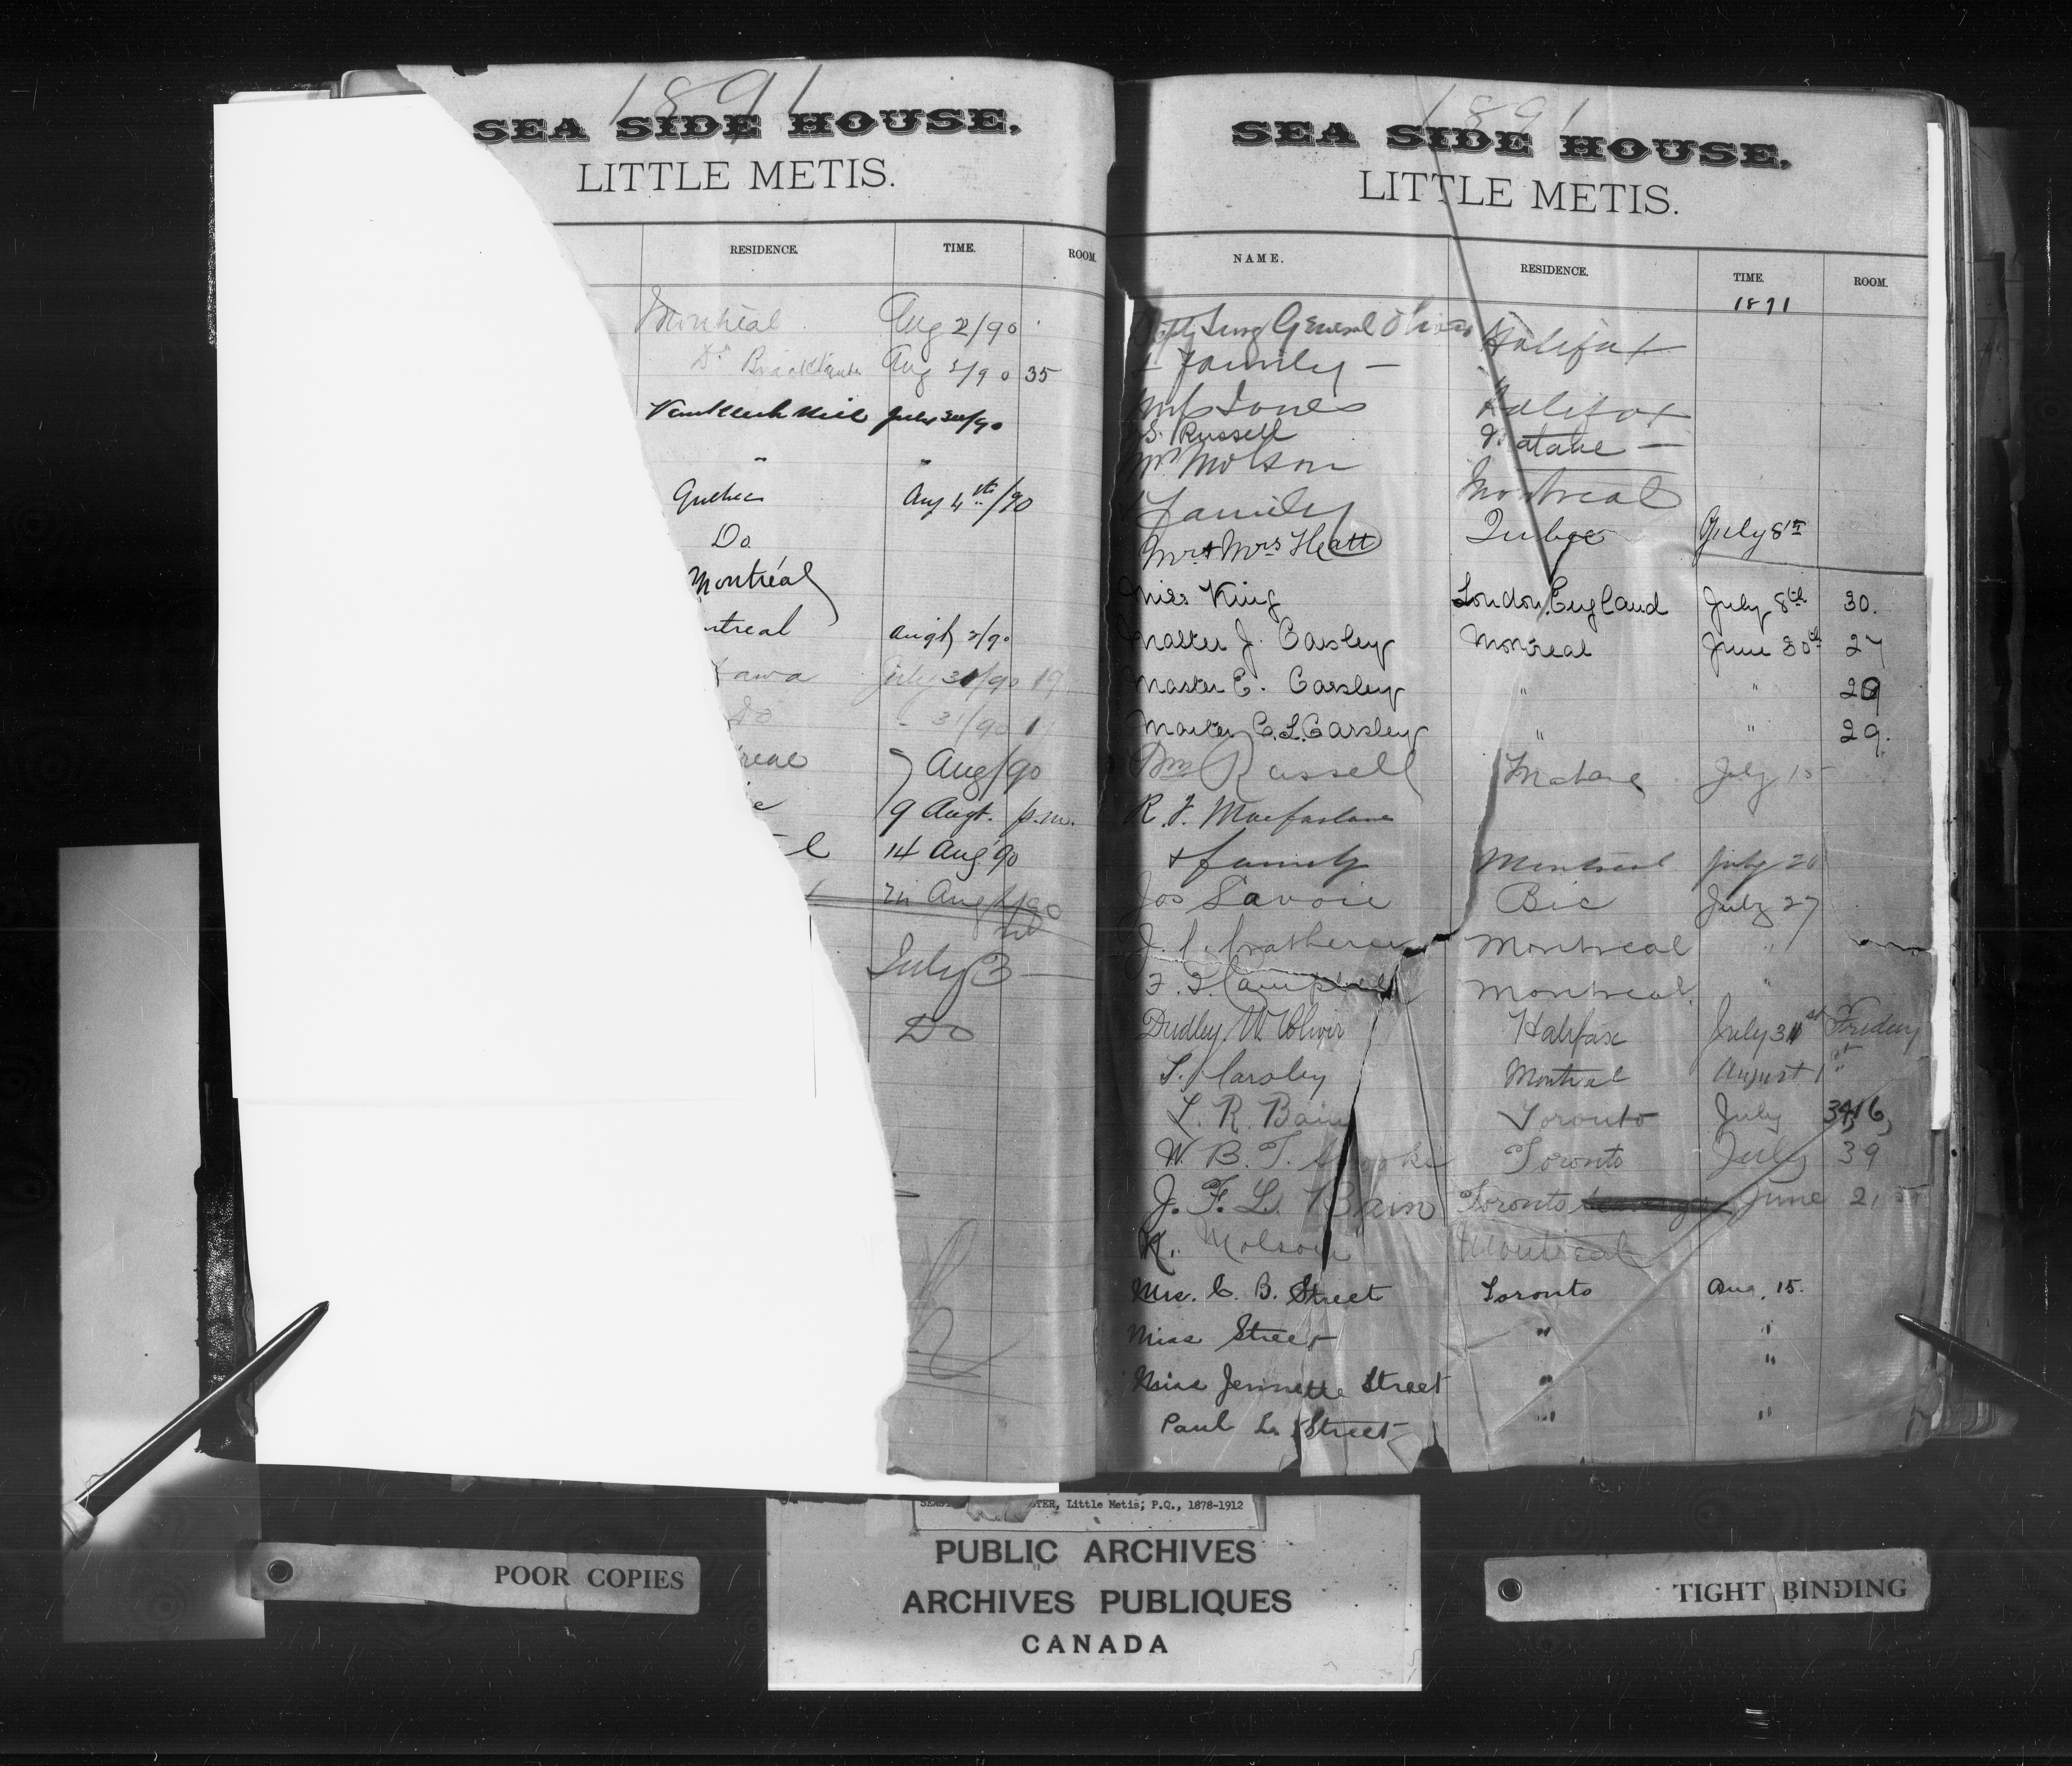 1891
SEA SIDE HOUSE,
LITTLE METIS.
RESIDENCE. TIME. ROOM.
Montreal Aug 2/90
Do Aug 2/90 35
July 30/90
" "
Quebec Aug 4th/90
Do
Montréal
ntreal Augt 2/90
awa July 31/90 19
Do - 31/90 1
real 7 Aug/90
9 Augt. p.m.
l 14 Aug 90
Aug/90
July 3 —
Do
1891
SEA SIDE HOUSE,
LITTLE METIS.
NAME. RESIDENCE. TIME. ROOM.
1891
Depty Surg General Oliver Halifax
& Family —
Miss Jones Halifax
S. Russell Matane —
Mrs Molson Montreal
& Family
Mr & Mrs Hett Quebec July 8th
Miss King London, England July 8th 30.
Master J. Carsley Montreal June 30th 27
Master E. Carsley " " 29
Master C. L. Carsley " " 29.
Wm Russell Matane July 15
R. F. Macfarlane
& family Montreal July 20
Jos Savoie Bic July 27
J. C. Montreal "
F. Campbell Montreal "
Dudley W. Oliver Halifax July 31st Friday
S. Carsley Montreal August 1st
L. R. Bain Toronto July
W. B. T. Toronto July 39
J. F. L. Bain Toronto June 21st
K. Molson Montreal
Mrs. C. B. Street Toronto Aug. 15.
Miss Street " "
Miss Jennette Street " "
Paul L. Street " "
TER, Little Metis; P.Q., 1878-1912
PUBLIC ARCHIVES
ARCHIVES PUBLIQUES
CANADA
POOR COPIES
TIGHT BINDING